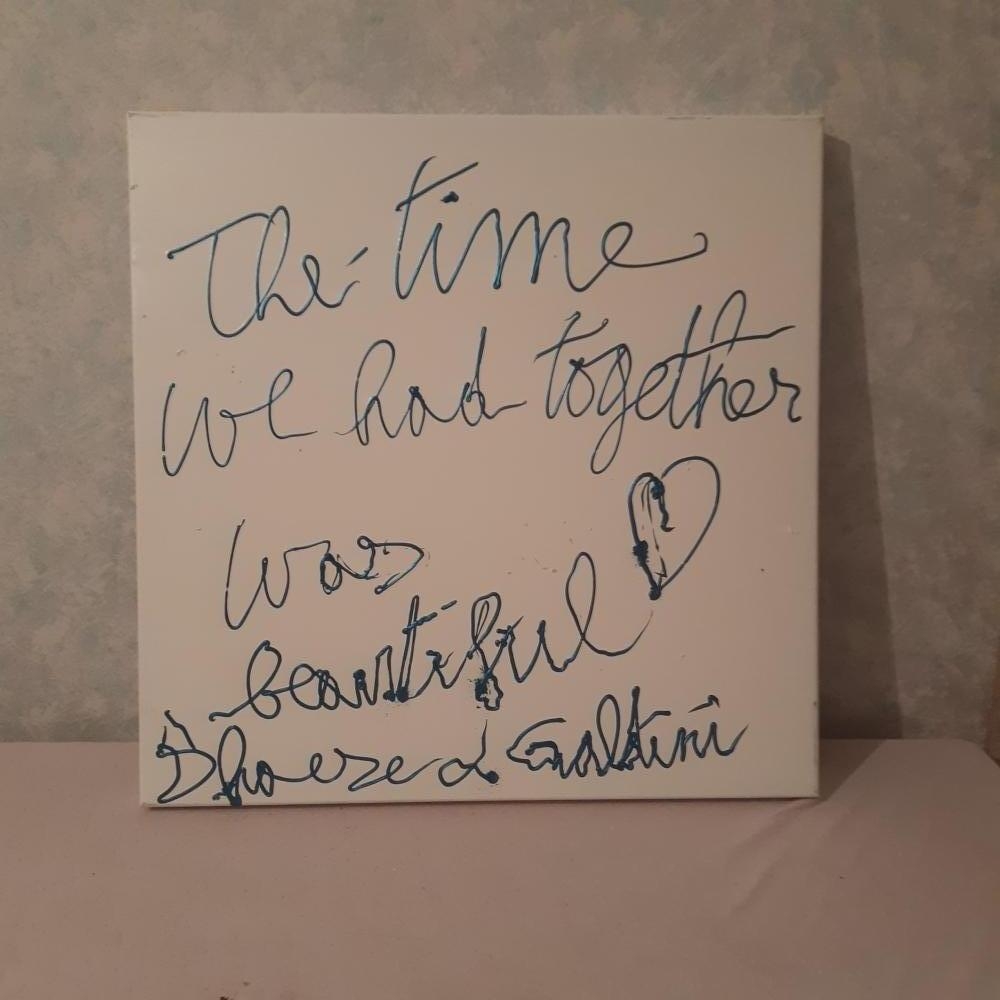 The time
we had together
was
beautiful